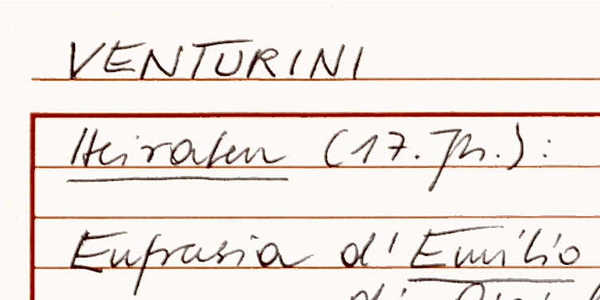 VENTURINI
Heiraten (17. Jh.):
Eufrasia d'Emilio